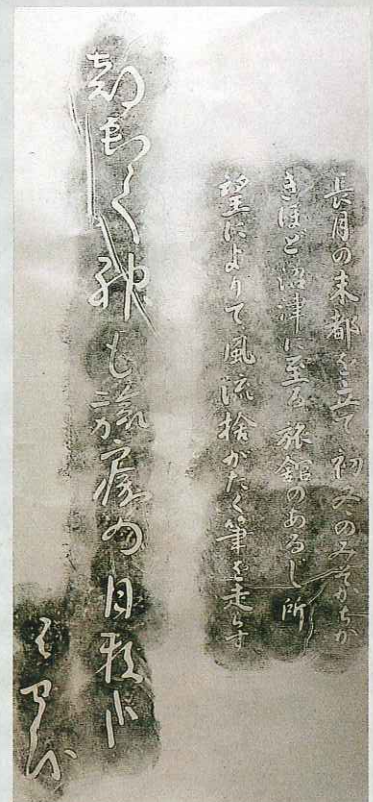 長月の末都を立て 初冬のみそかちか
きほど沼津に至る 旅館のあるし所
望によりて風流捨がたく筆を走らす
都出て神も旅寐の日数哉
はせを